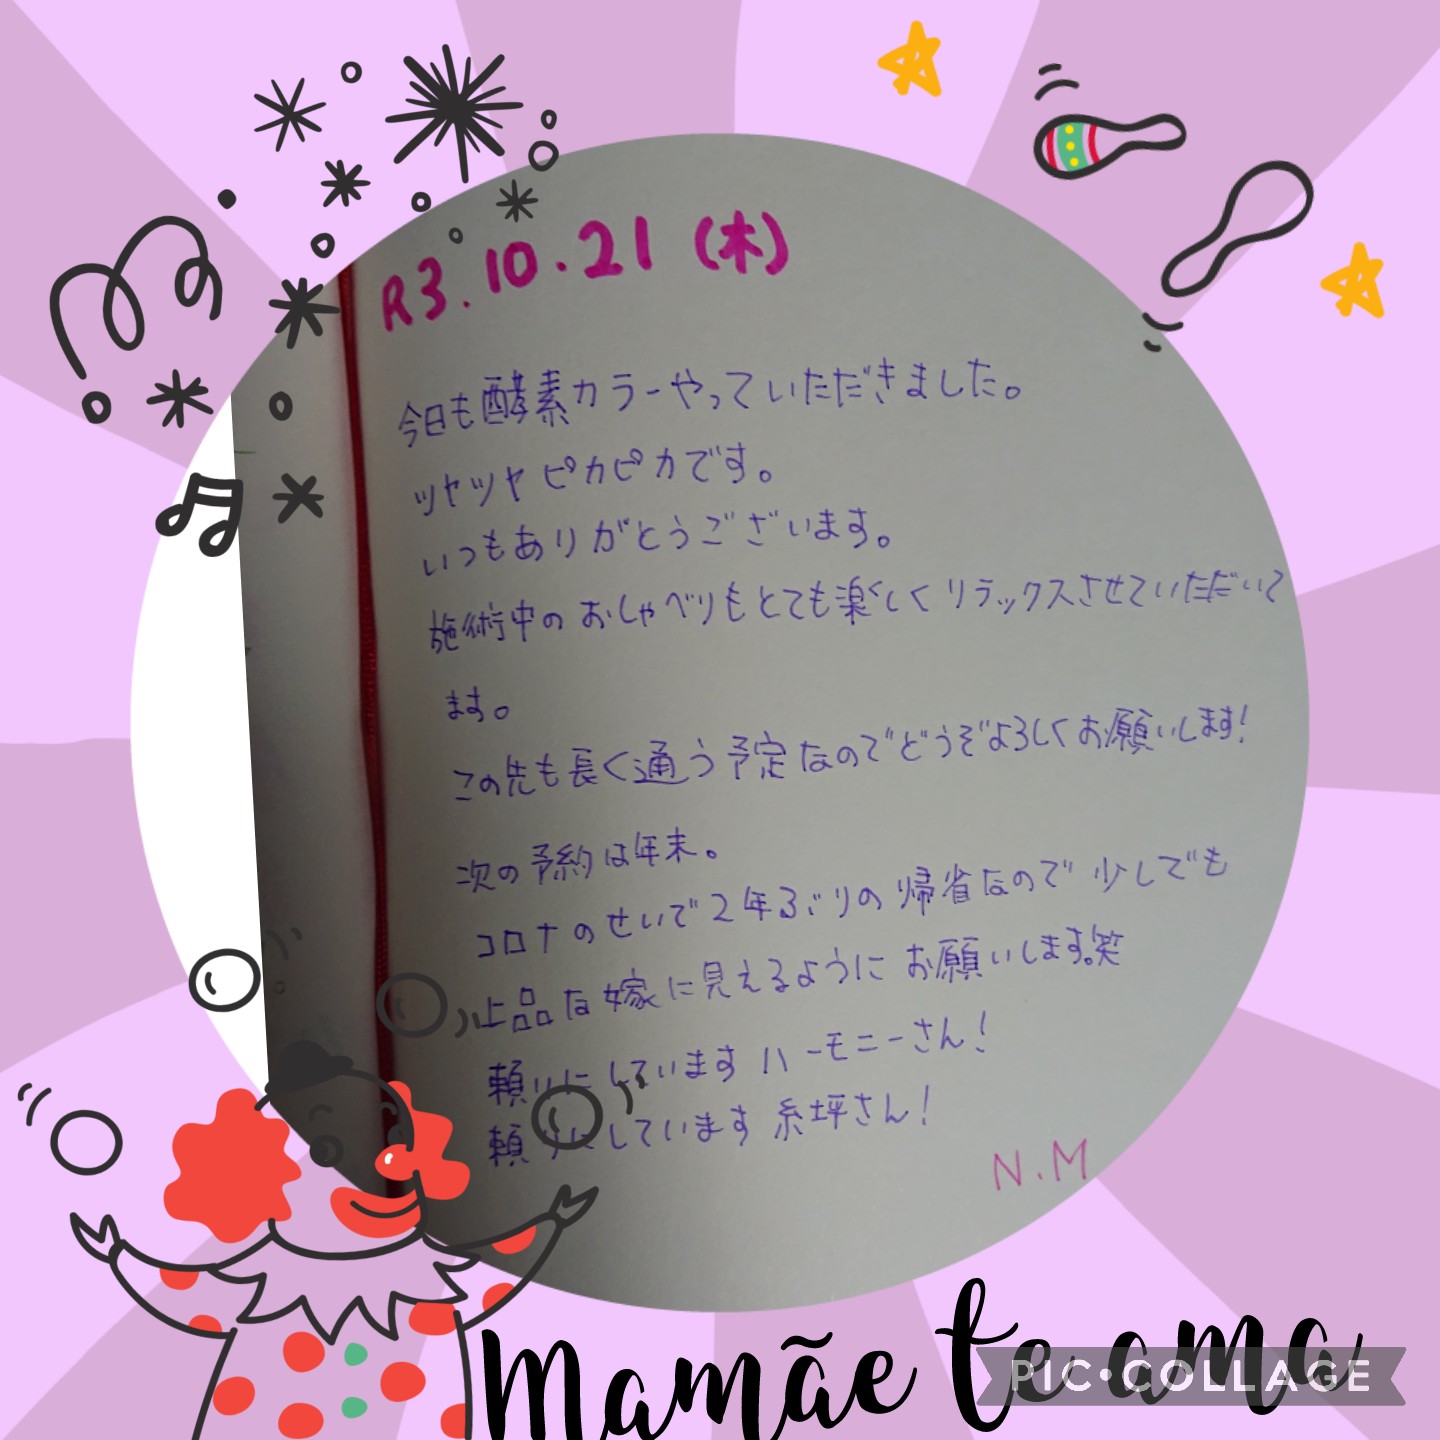 R3.10.21 (木)
今日も酵素カラーやっていただきました。
ツヤツヤピカピカです。
いつもありがとうございます。
施術中のおしゃべりもとても楽しくリラックスさせていただいて
ます。
この先も長く通う予定なのでどうぞよろしくお願いします!
次の予約は年末。
コロナのせいで2年ぶりの帰省なので少しでも
上品な嫁に見えるようにお願いします。笑
頼りにしています ハーモニーさん!
頼りにしています 糸坪さん!
N.M
Mamãe te ama
PIC•COLLAGE